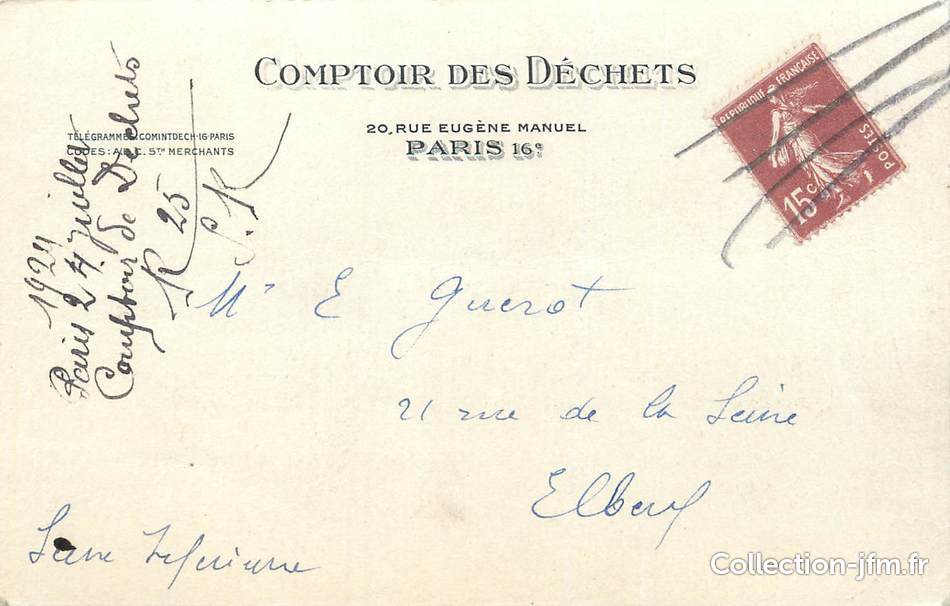 COMPTOIR DES DÉCHETS
TÉLÉGRAMMES: COMINTDECH-16-PARIS
CODES: A.B.C. 5TH MERCHANTS
20, RUE EUGÈNE MANUEL
PARIS 16e
RÉPUBLIQUE FRANÇAISE
POSTES
15c
1924
Paris 24 juillet
Comptoir de Dechets
R 25
S. R
Mr E Guerot
21 rue de la Seine
Elbeuf
Seine Inferieure
Collection-jfm.fr